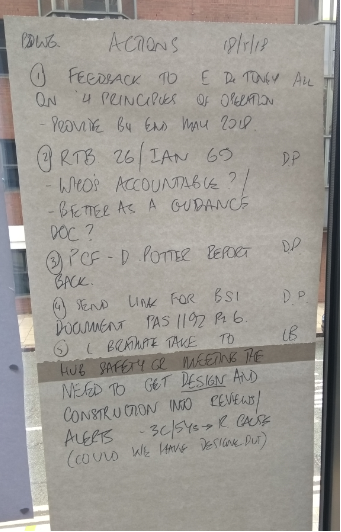 ACTIONS 18/5/18
① FEEDBACK TO E DE TONEY ALL
ON '4 PRINCIPLES OF OPERATION
- PROVIDE BY END MAY 2018.
② RTB 26/IAN 69 DP
- WHO'S ACCOUNTABLE?/
- BETTER AS A GUIDANCE
DOC?
③ PCF - D POTTER REPORT DP
BACK.
④ SEND LINK FOR BSI DP
DOCUMENT PAS 1192 Pt 6.
⑤ L TAKE TO LB
HUB SAFETY MEETING THE
NEED TO GET DESIGN AND
CONSTRUCTION INTO REVIEWS/
ALERTS - 3C/5Ys → R CAUSE
(COULD WE HAVE DESIGNED OUT)